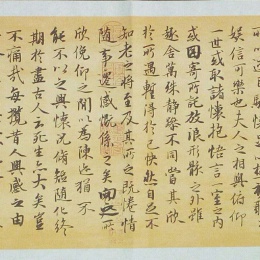 娛信可樂也夫人之相與俯仰
一世或取諸懷抱悟言一室之內
或因寄所託放浪形骸之外雖
趣舍萬殊靜躁不同當其欣
於所遇蹔得於己快然自足不
知老之將至及其所之既惓情
隨事遷感慨係之矣向之所
欣俛仰之間以為陳迹猶不
能不以之興懷況脩短隨化終
期於盡古人云死生亦大矣豈
不痛哉每攬昔人興感之由